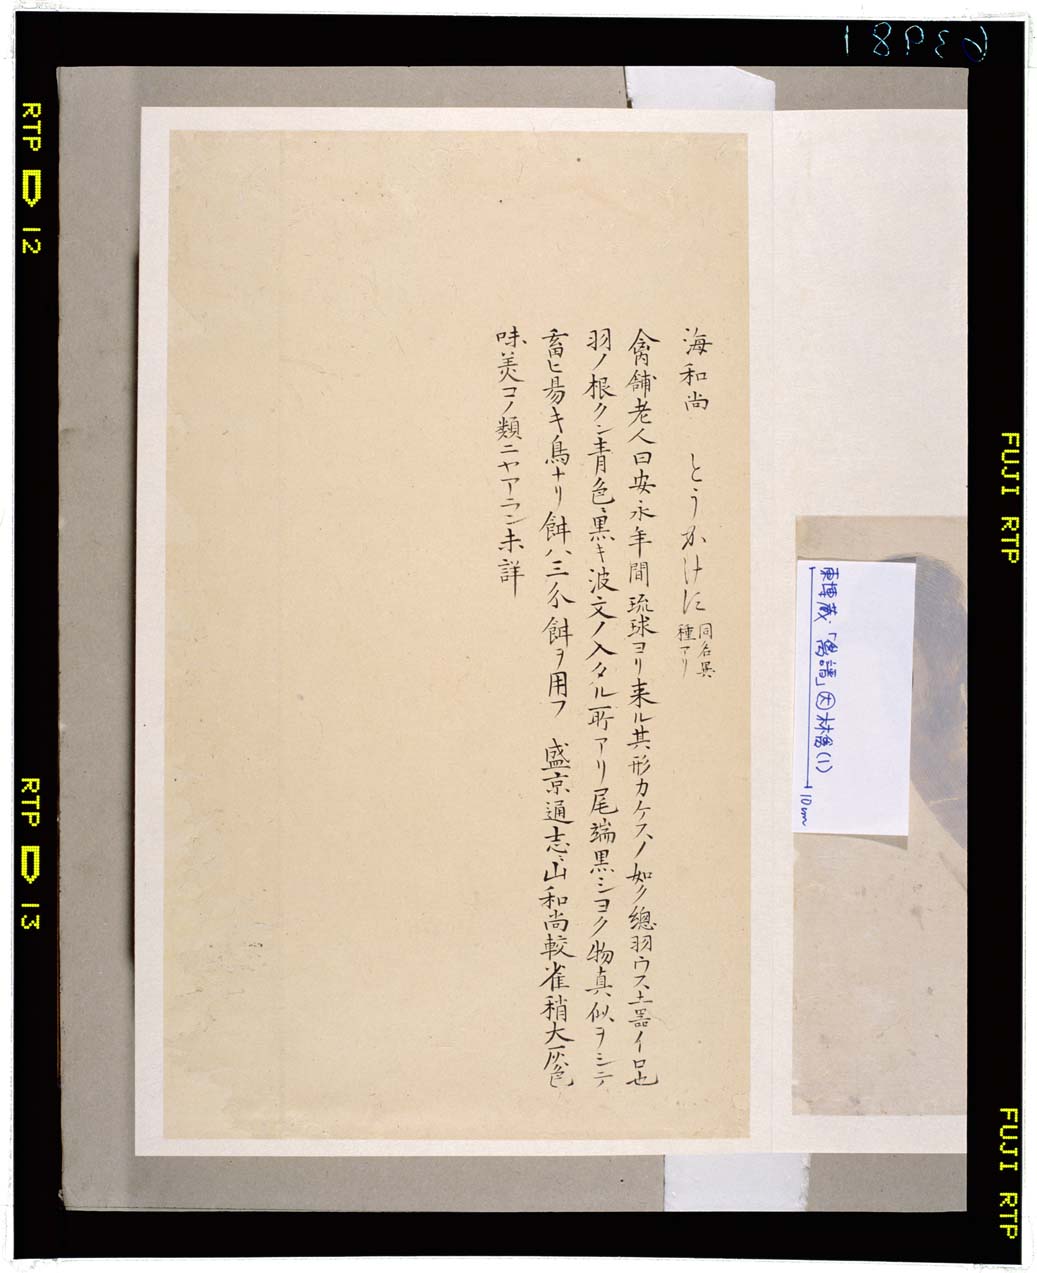 海和尚 とうかけす 同名異
種アリ
禽舗老人曰安永年間琉球ヨリ来ル其形カケスノ如ク總羽ウス土器イロ也
羽ノ根クン青色黒キ波文ノ入タル所アリ尾端黒シヨク物真似ヲシテ
畜ヒ易キ鳥ナリ餌ハ三分餌ヲ用フ 盛京通志ニ山和尚較雀稍大灰色
味美コノ類ニヤアラン未詳
東博蔵「禽譜」林禽(1)
10cm
RTP 12
RTP 13
FUJI RTP
FUJI RTP